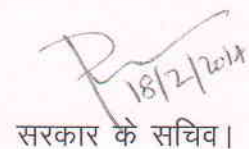 18/2/2014
सरकार के सचिव।